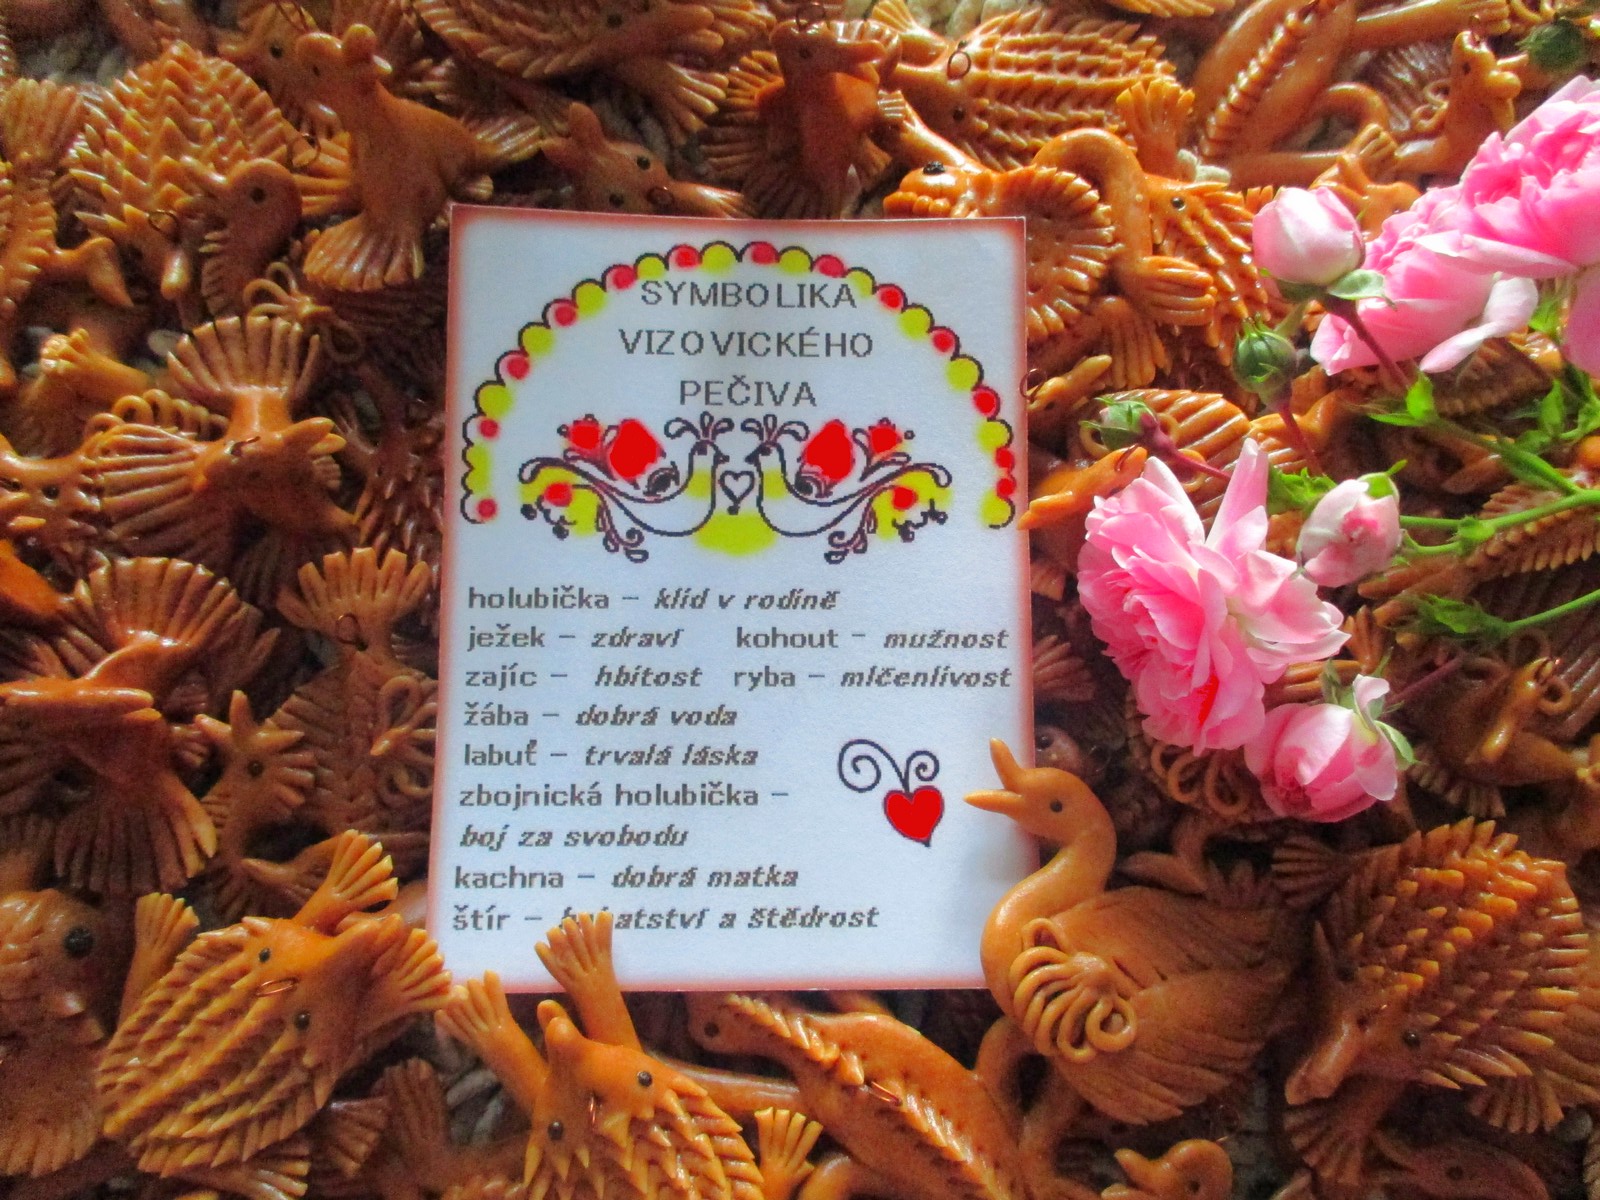 SYMBOLIKA
VIZOVICKÉHO
PEČIVA
holubička – klid v rodině
ježek – zdraví kohout – mužnost
zajíc – hbitost ryba – mlčenlivost
žába – dobrá voda
labuť – trvalá láska
zbojnická holubička –
boj za svobodu
kachna – dobrá matka
štír – a štědrost